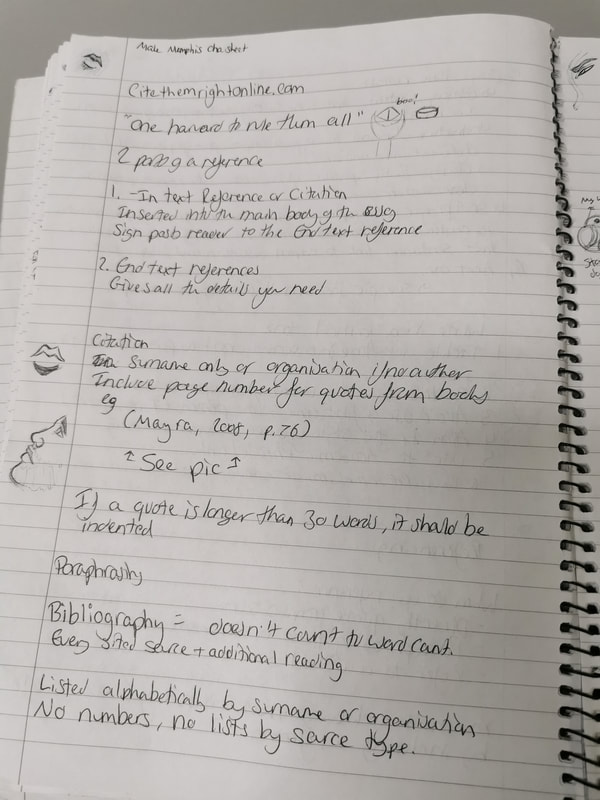 Make Memphis cha sheet
Citethemrightonline.com
"One harvard to rule them all"
boo!
2 parts of a reference
1. - In text Reference or Citation
Inserted into the main body of the essay
Sign posts reader to the End text reference
2. End text references
Gives all the details you need
Citation
Surname only or organisation if no author
Include page number for quotes from books
eg
(Mayra, 2008, p.26)
↑ See pic ↑
If a quote is longer than 30 words, it should be
indented
Paraphrasing
Bibliography = doesn't count to word count.
Every sited source + additional reading
Listed alphabetically by surname or organisation
No numbers, no lists by source type.